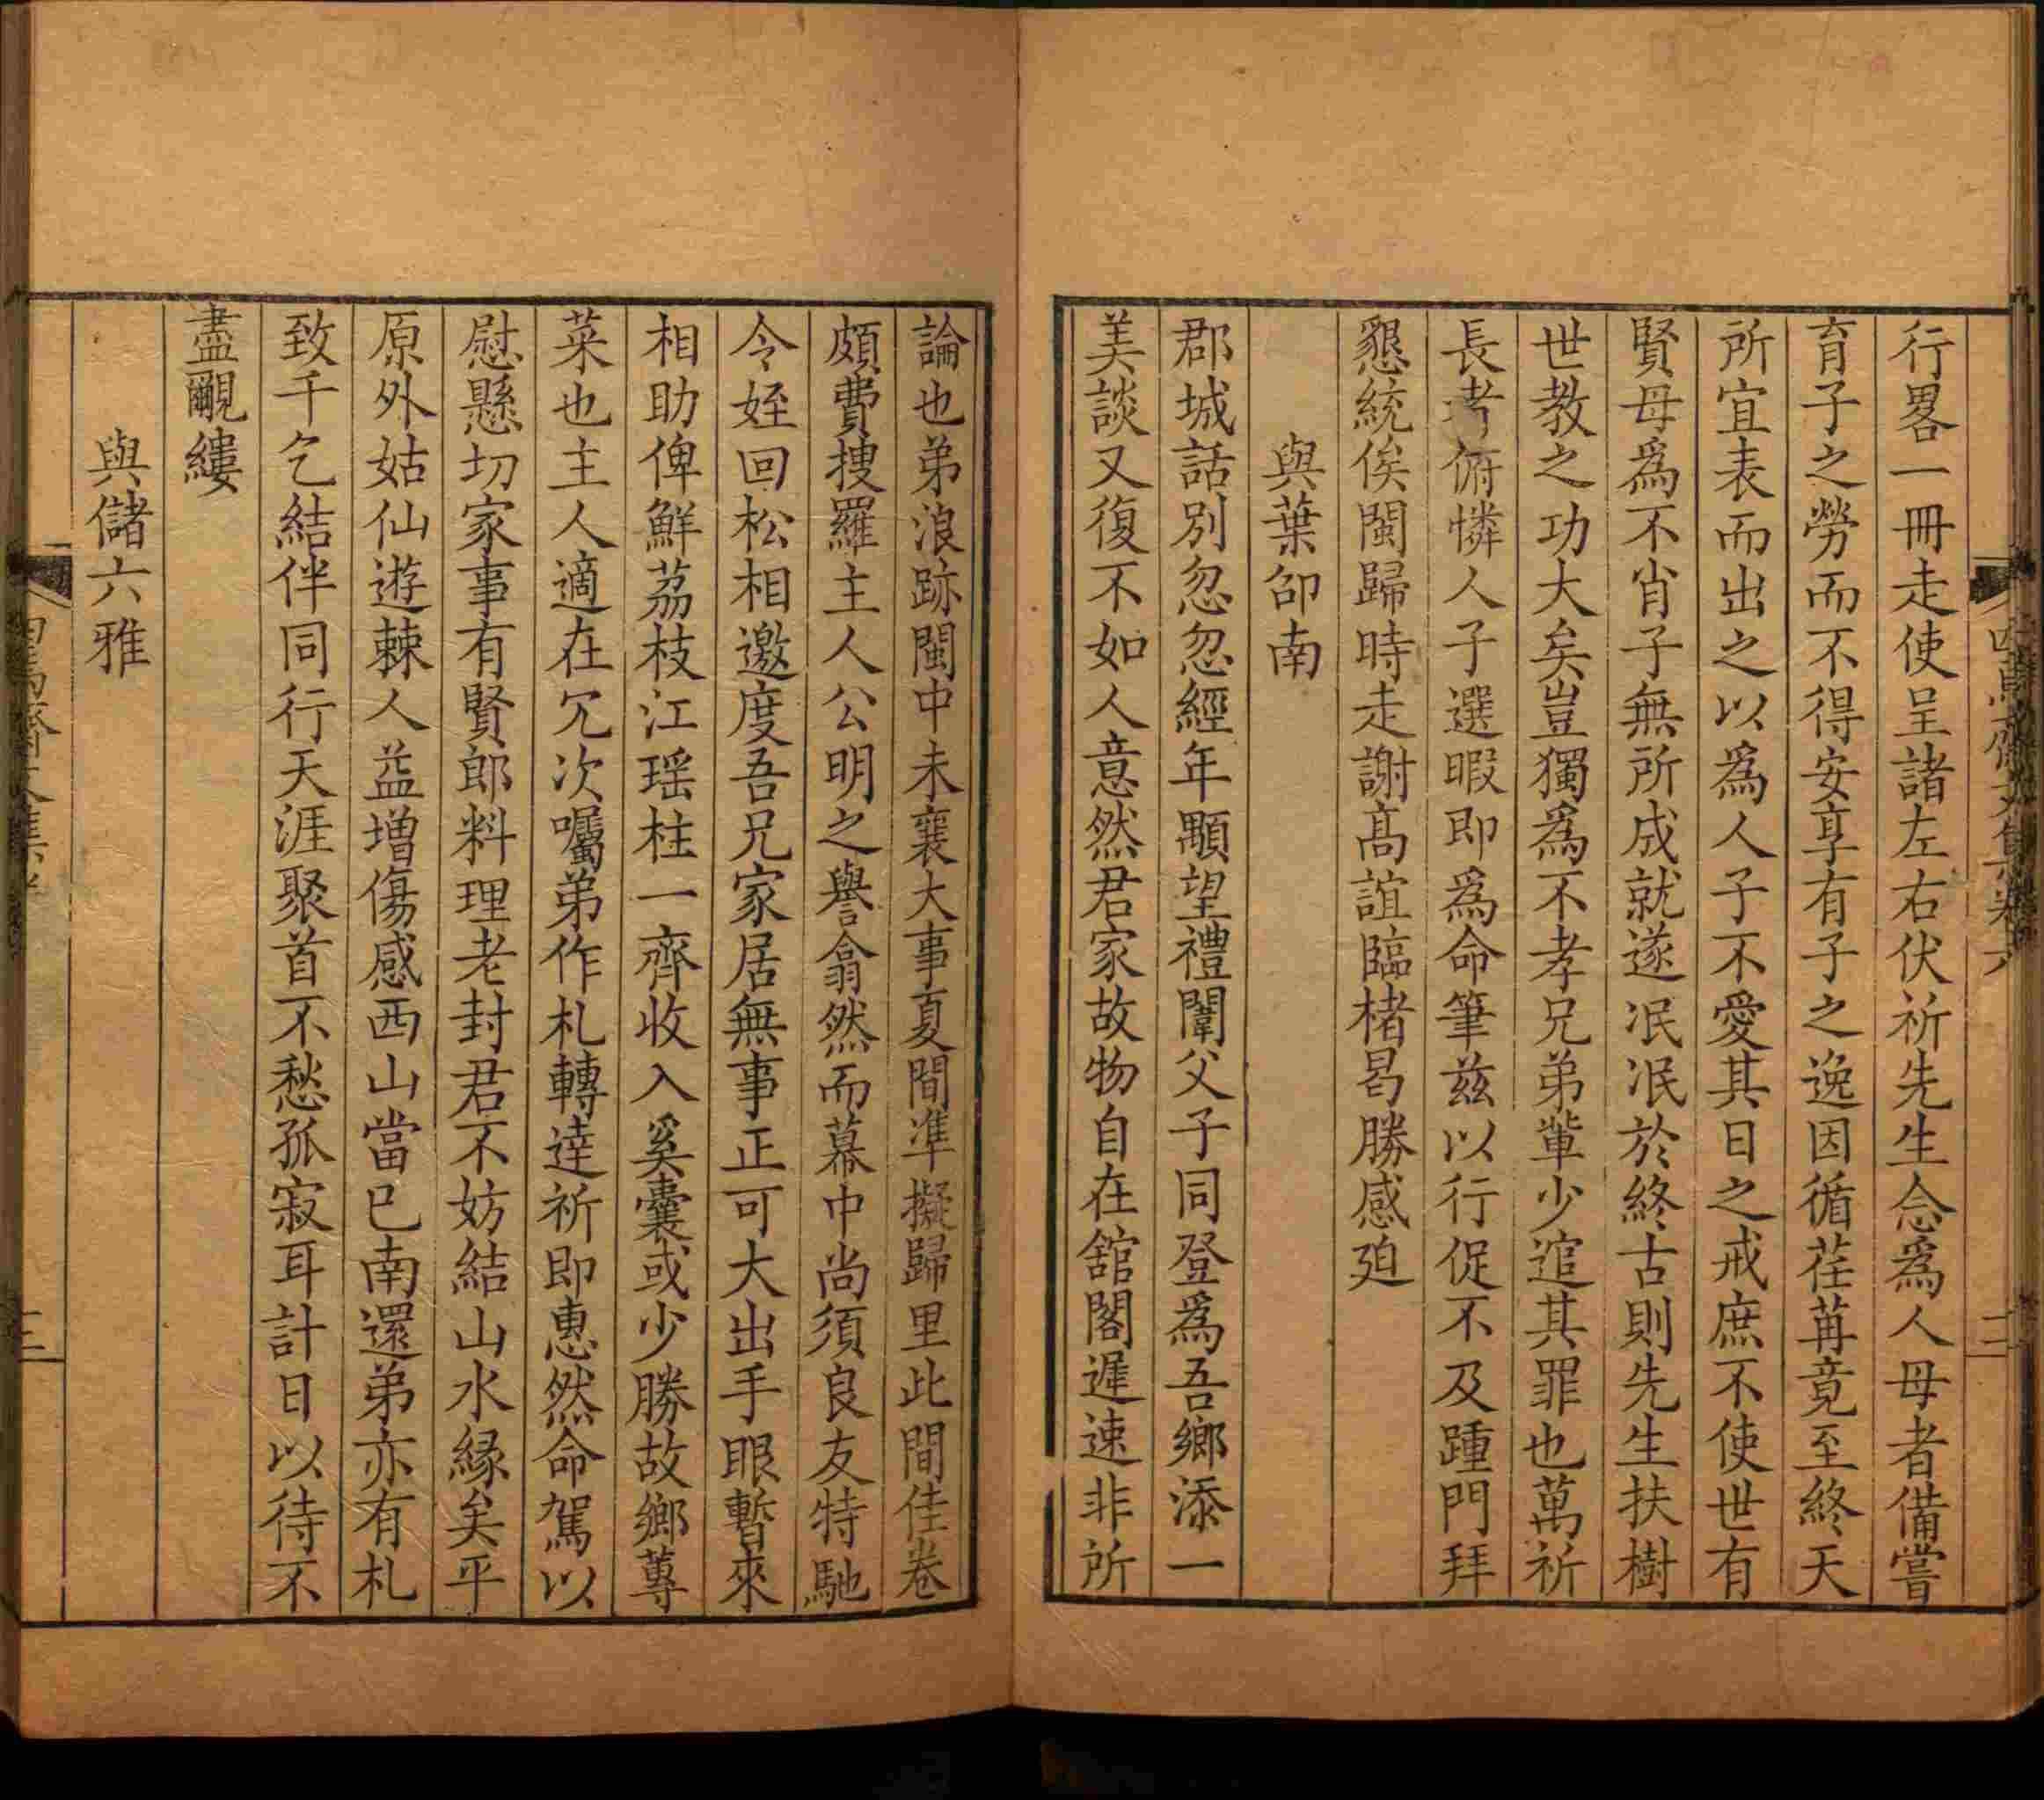 行畧一冊走使呈諸左右伏祈先生念爲人母者備嘗
育子之勞而不得安享有子之逸因循荏苒竟至終天
所宜表而出之以爲人子不愛其日之戒庶不使世有
賢母爲不肖子無所成就遂泯泯於終古則先生扶樹
世教之功大矣豈獨爲不孝兄弟輩少逭其罪也萬祈
長者俯憐人子選暇即爲命筆兹以行促不及踵門拜
懇統俟閩歸時走謝髙誼臨楮曷勝感廹
與葉卲南
郡城話別忽忽經年顒望禮闈父子同登爲吾鄉添一
美談又復不如人意然君家故物自在舘閣遲速非所
論也弟浪跡閩中未襄大事夏間凖擬歸里此間佳卷
頗費搜羅主人公明之譽翕然而幕中尚須良友特馳
令姪回松相邀度吾兄家居無事正可大出手眼暫來
相助俾鮮荔枝江瑶柱一齊收入奚囊或少勝故鄉蓴
菜也主人適在冗次囑弟作札轉達祈即惠然命駕以
慰懸切家事有賢郎料理老封君不妨結山水緣矣平
原外姑仙遊棘人益增傷感西山當已南還弟亦有札
致千乞結伴同行天涯聚首不愁孤寂耳計日以待不
盡覼縷
與儲六雅